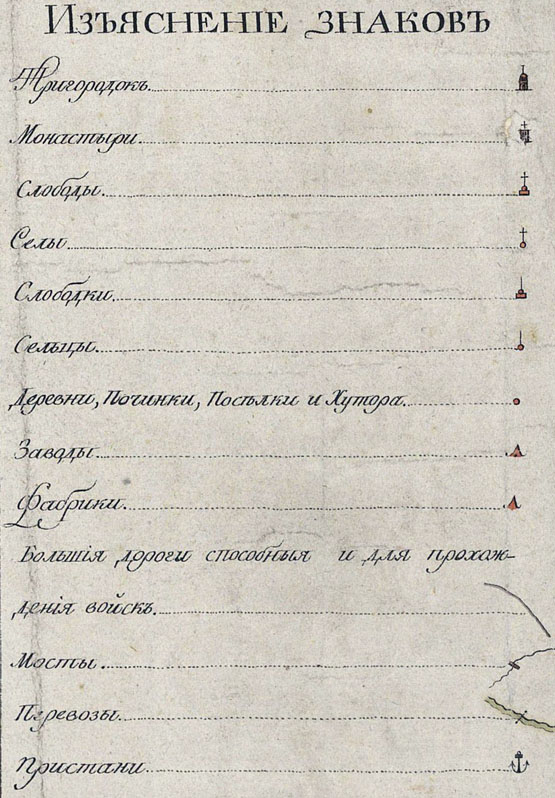 Изъясненіе знаковъ
Пригородокъ
Монастыри
Слободы
Селы
Слободки
Сельцы
Деревни, Починки, Посѣлки и Хутора
Заводы
Фабрики
Большія дороги способныя и для прохож-
денія войскъ
Мосты
Перевозы
Пристани